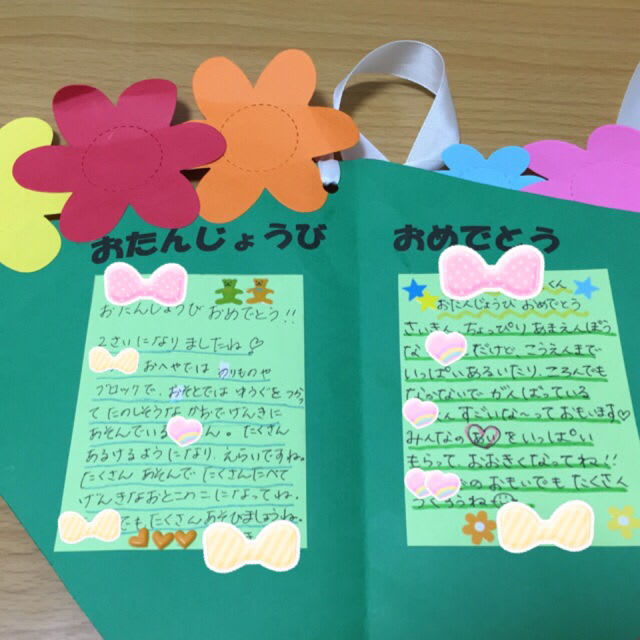 おたんじょうび
おたんじょうび おめでとう!!
2さいになりましたね♡
おへやでは のりものや
ブロックで、おそとでは すうぐをつかっ
てたのしそうなかおでげんきに
あそんでいる ん。たくさん
あるけるようになり、えらいですね。
たくさん あそんで たくさんたべて
げんきなおとこのこになってね。
でも たくさんあそびましょうね。
おめでとう
くん
おたんじょうび おめでとう
さいきん、ちょっぴり あまえんぼう
な だけど、こうえんまで
いっぱいあるいたり、ころんでも
なかないで がんばっている
ん すごいな〜っておもいます♡
みんなの あい をいっぱい
もらって おおきくなってね!!
のおもいでも たくさん
つくろうね